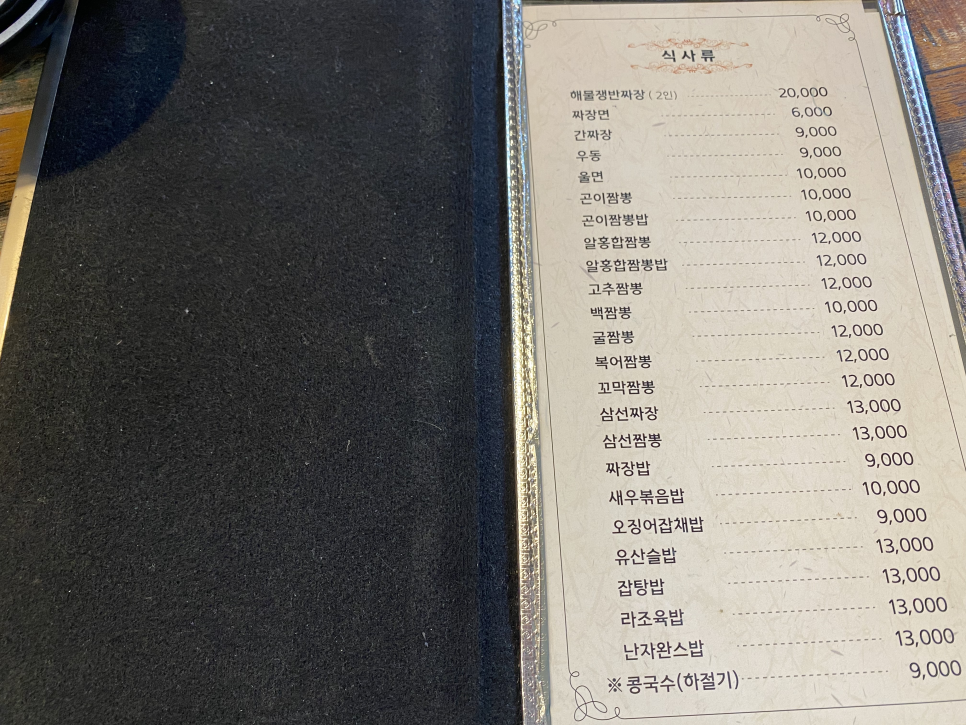 식사류
해물쟁반짜장 ( 2인) 20,000
짜장면 6,000
간짜장 9,000
우동 9,000
울면 10,000
곤이짬뽕 10,000
곤이짬뽕밥 10,000
알홍합짬뽕 12,000
알홍합짬뽕밥 12,000
고추짬뽕 12,000
백짬뽕 10,000
굴짬뽕 12,000
복어짬뽕 12,000
꼬막짬뽕 12,000
삼선짜장 13,000
삼선짬뽕 13,000
짜장밥 9,000
새우볶음밥 10,000
오징어잡채밥 9,000
유산슬밥 13,000
잡탕밥 13,000
라조육밥 13,000
난자완스밥 13,000
※ 콩국수(하절기) 9,000